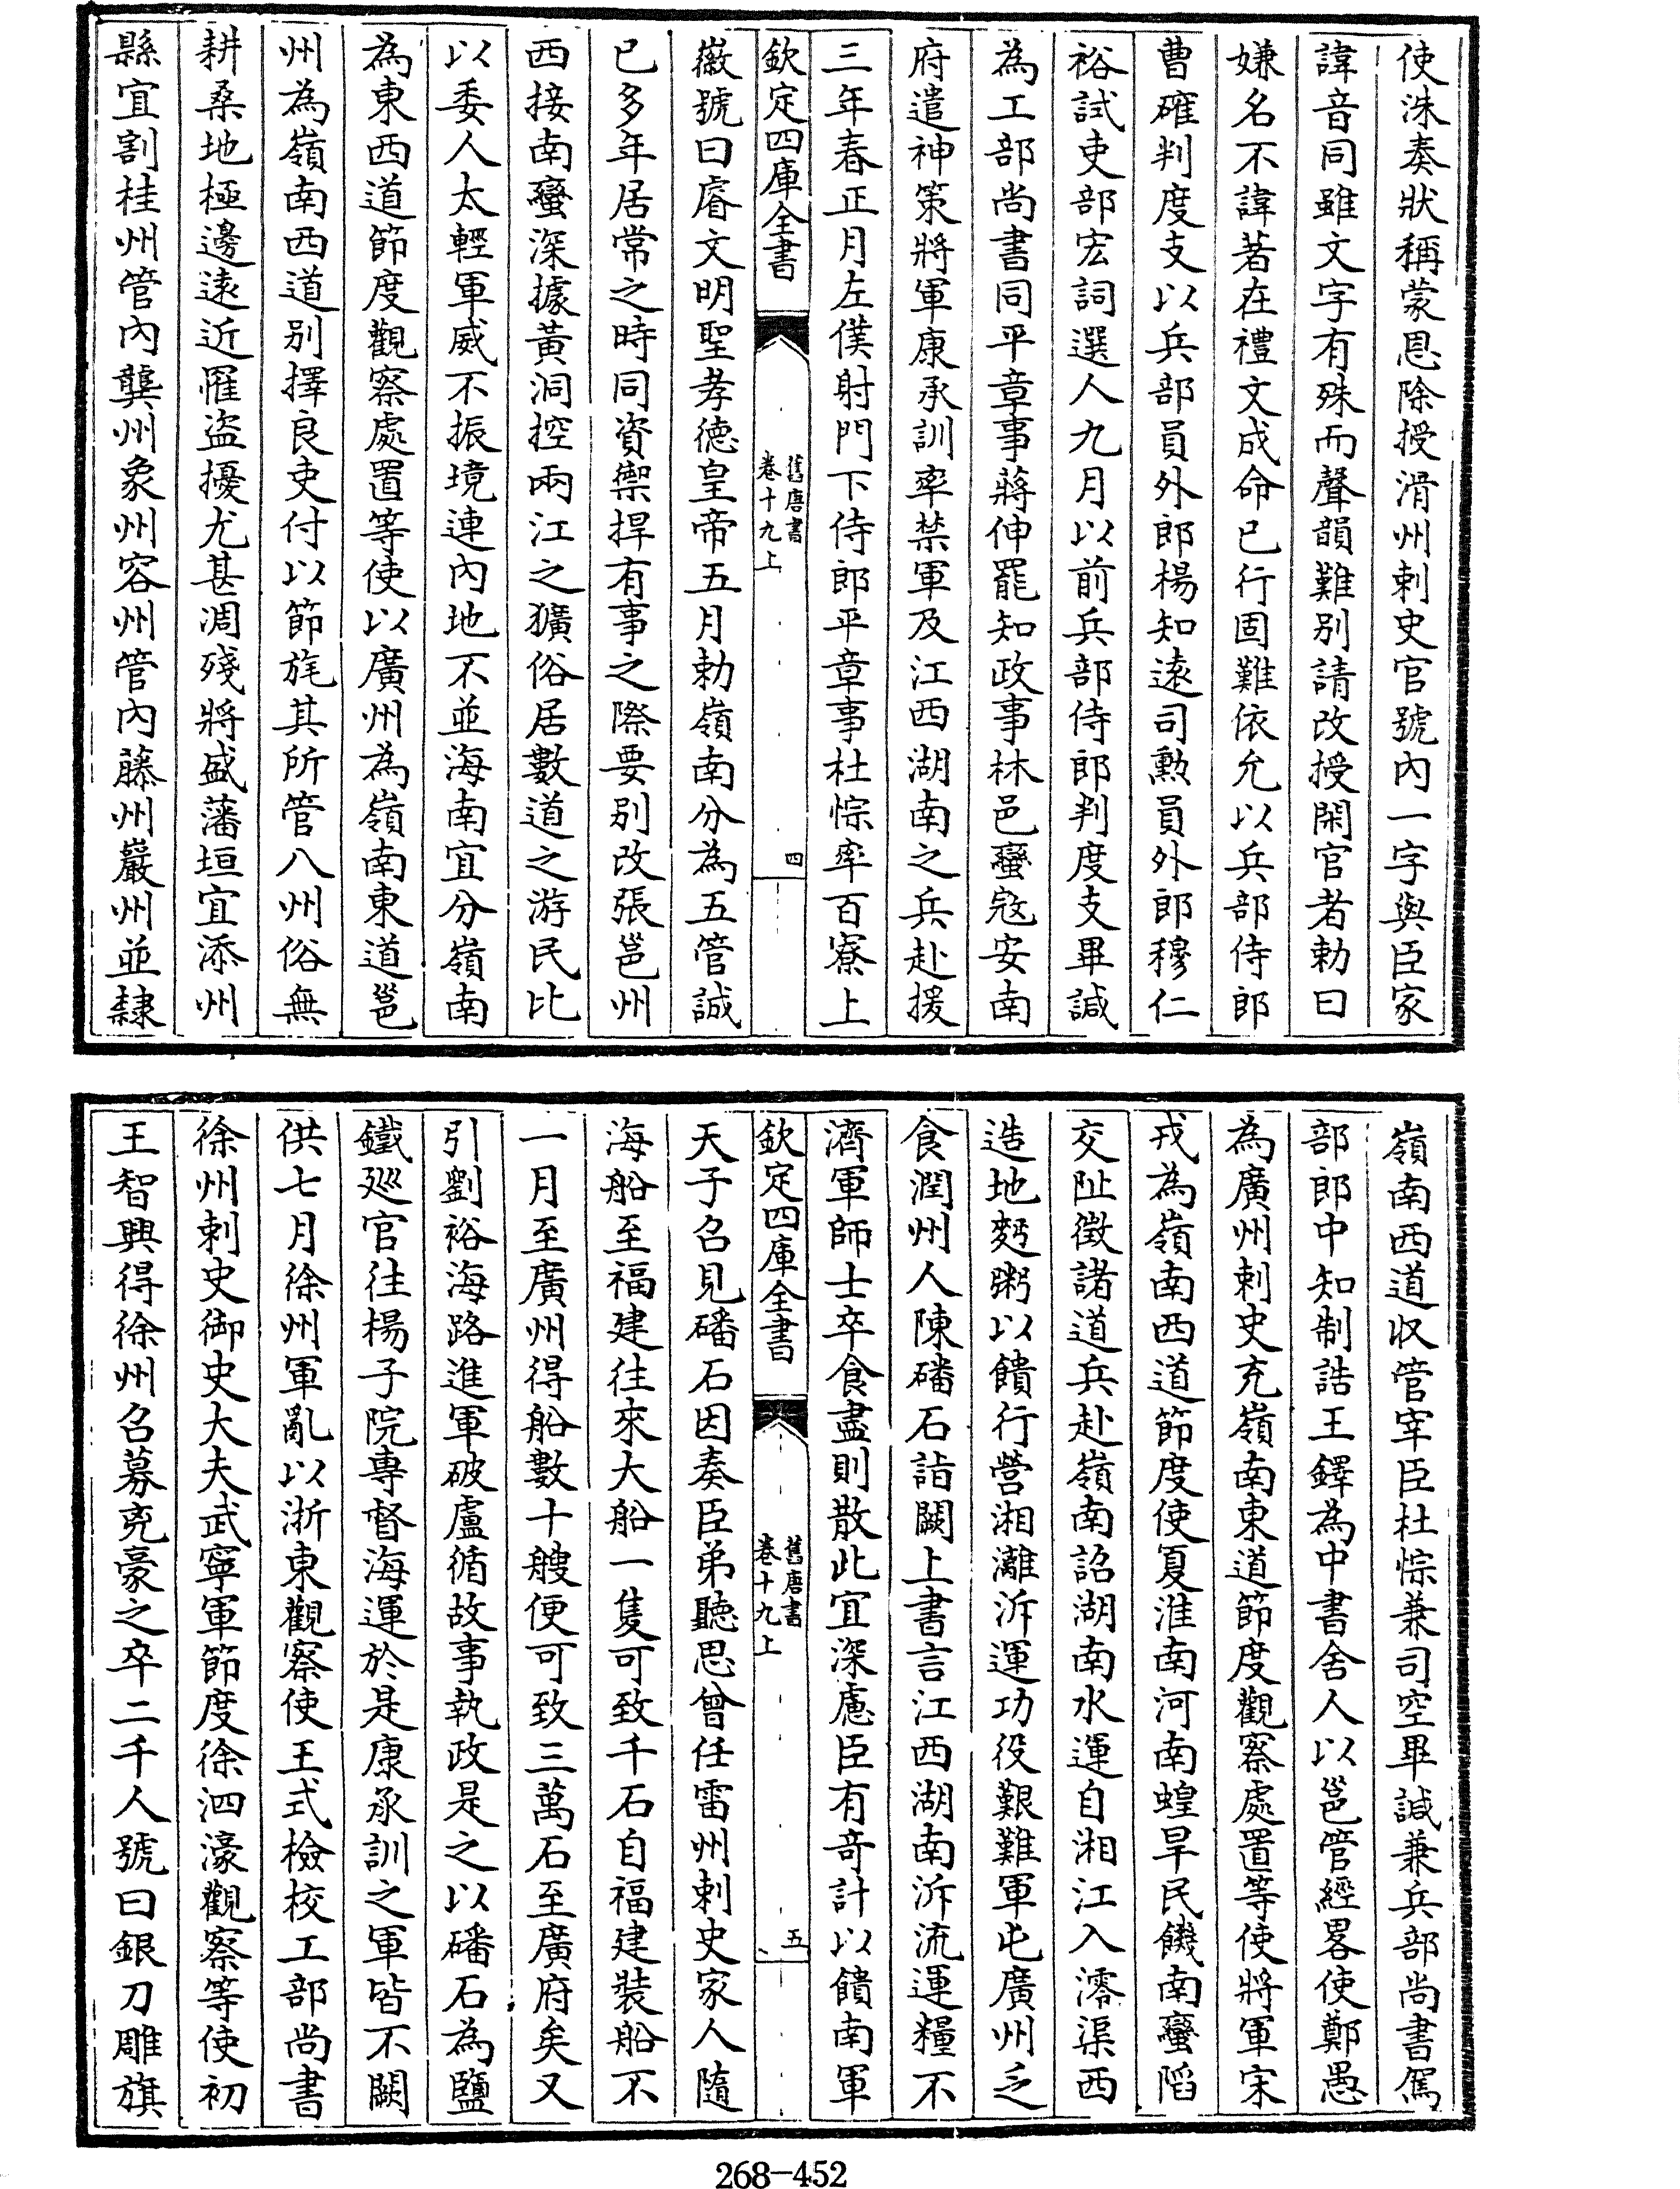 使洙奏狀稱蒙恩除授滑州刺史官號內一字與臣家
諱音同雖文字有殊而聲韻難别請改授閑官者勅曰
嫌名不諱著在禮文成命已行固難依允以兵部侍郎
曹確判度支以兵部員外郎楊知遠司勲員外郎穆仁
裕試吏部宏詞選人九月以前兵部侍郎判度支畢諴
為工部尚書同平章事蔣伸罷知政事林邑蠻寇安南
府遣神策將軍康承訓率禁軍及江西湖南之兵赴援
三年春正月左僕射門下侍郎平章事杜悰率百寮上
欽定四庫全書
舊唐書
卷十九上
四
徽號曰睿文明聖孝德皇帝五月勅嶺南分為五管誠
已多年居常之時同資禦捍有事之際要别改張邕州
西接南蠻深據黃洞控兩江之獷俗居數道之游民比
以委人太輕軍威不振境連內地不並海南宜分嶺南
為東西道節度觀察處置等使以廣州為嶺南東道邕
州為嶺南西道别擇良吏付以節旄其所管八州俗無
耕桑地極邊逺近罹盜擾尤甚凋殘將盛藩垣宜添州
縣宜割桂州管內龔州象州容州管內藤州巖州並隸
嶺南西道収管宰臣杜悰兼司空畢諴兼兵部尚書駕
部郎中知制誥王鐸為中書舍人以邕管經畧使鄭愚
為廣州刺史充嶺南東道節度觀察處置等使將軍宋
戎為嶺南西道節度使夏淮南河南蝗旱民饑南蠻陷
交阯徵諸道兵赴嶺南詔湖南水運自湘江入澪渠西
造地麪粥以饋行營湘灕泝運功役艱難軍屯廣州乏
食潤州人陳磻石詣闕上書言江西湖南泝流運糧不
濟軍師士卒食盡則散此宜深慮臣有竒計以饋南軍
欽定四庫全書
舊唐書
卷十九上
五
天子召見磻石因奏臣弟聽思曾任雷州刺史家人隨
海船至福建往來大船一隻可致千石自福建装船不
一月至廣州得船數十艘便可致三萬石至廣府矣又
引劉裕海路進軍破盧循故事執政是之以磻石為鹽
鐵廵官往楊子院專督海運於是康承訓之軍皆不闕
供七月徐州軍亂以浙東觀察使王式檢校工部尚書
徐州刺史御史大夫武寧軍節度徐泗濠觀察等使初
王智興得徐州召募兇豪之卒二千人號曰銀刀雕旗
268-452